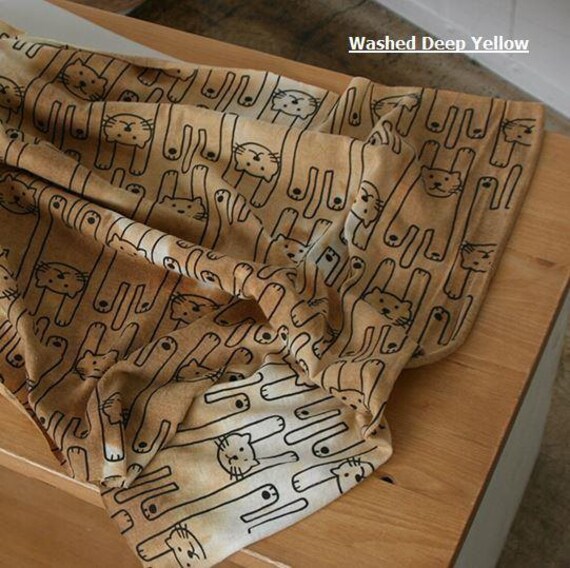 Washed Deep Yellow